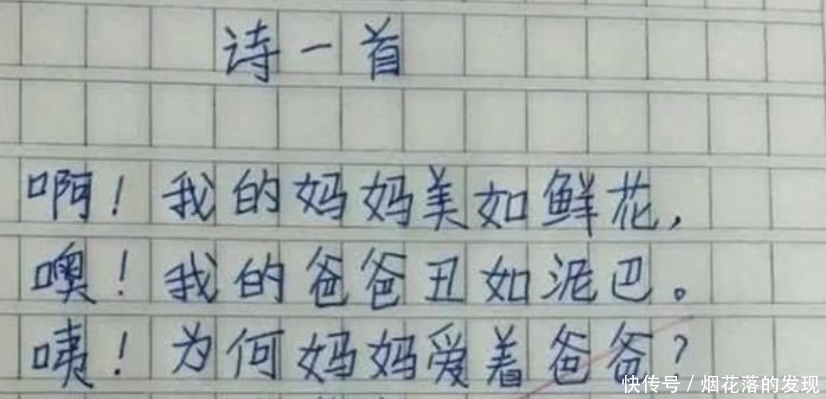 诗一首
啊！我的妈妈美如鲜花，
噢！我的爸爸丑如泥巴。
咦！为何妈妈爱着爸爸？
快传号/烟花落的发现